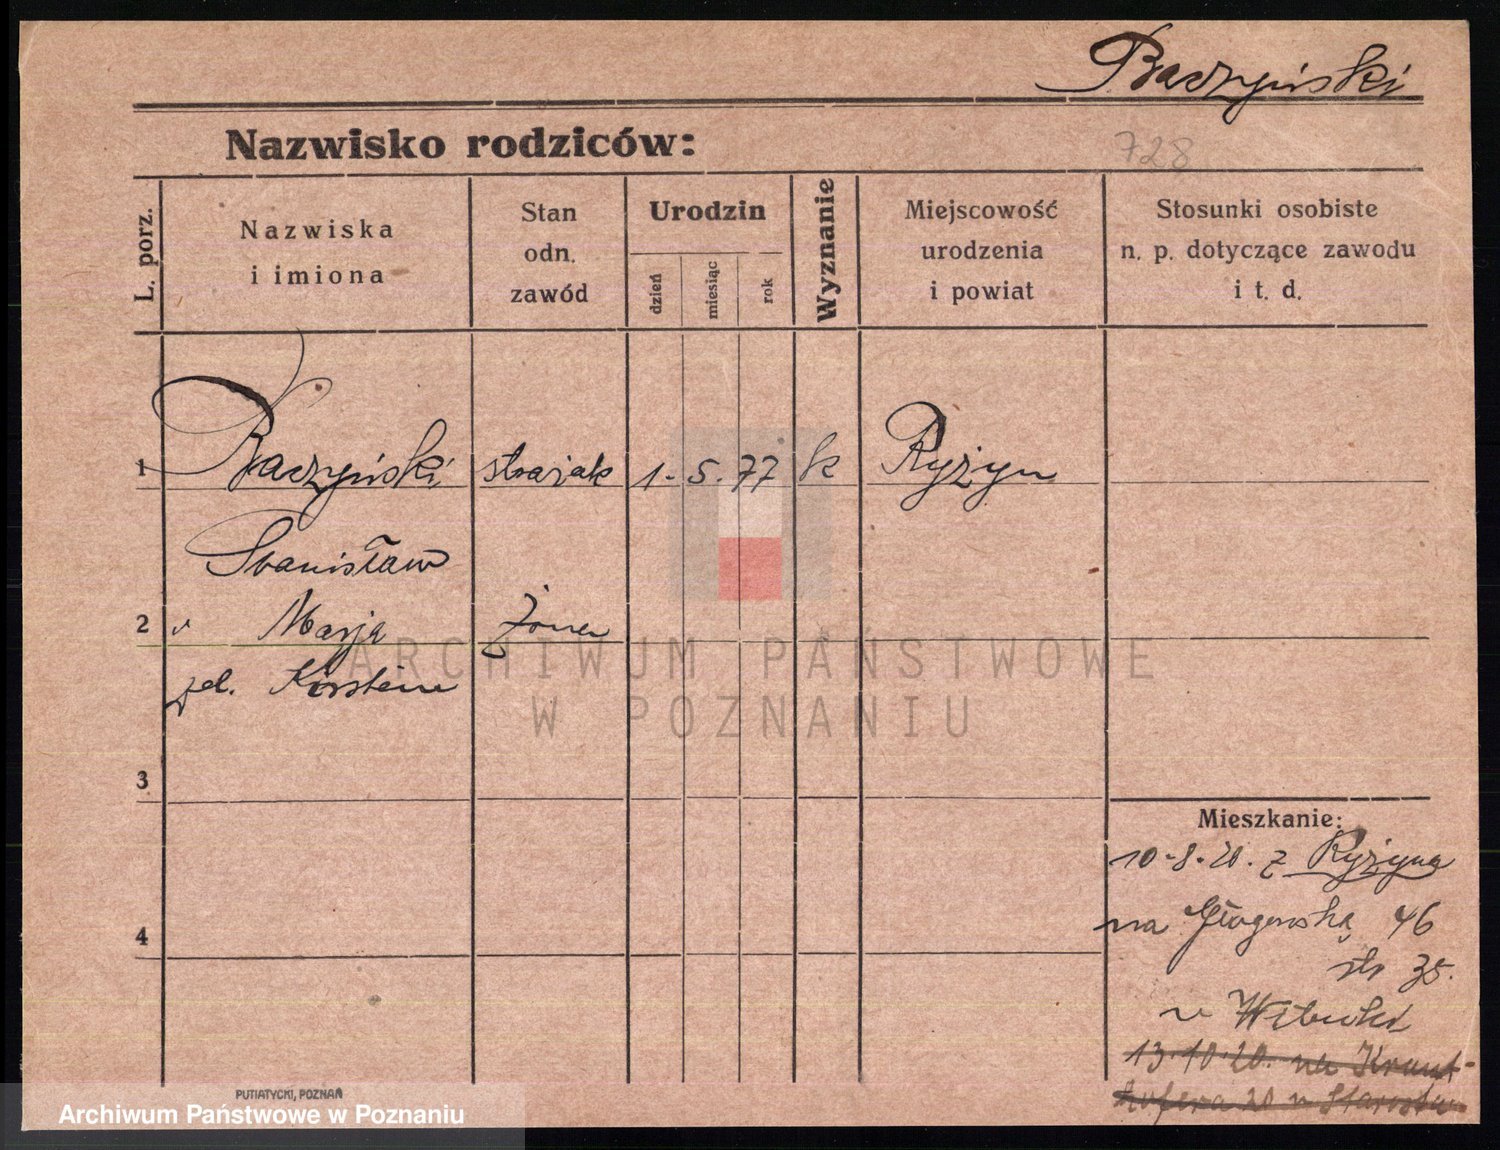 Baczyński
Nazwisko rodziców:
728
L. porz.
Nazwiska
i imiona
Stan
odn.
zawód
Urodzin
dzień
miesiąc
rok
Wyznanie
Miejscowość
urodzenia
i powiat
Stosunki osobiste
n. p. dotyczące zawodu
i t. d.
1 Baczyński strażak 1. 5. 77 k Ryżyn
Stanisław
2 Marja żona
zd.
3
4
Mieszkanie:
10.8.20. z Ryżyna
na Głogowską 46
35.
u
13.10.20. na Kraut-
hofera 20 u
ARCHIWUM PAŃSTWOWE
W POZNANIU
PUTIATYCKI, POZNAŃ
Archiwum Państwowe w Poznaniu